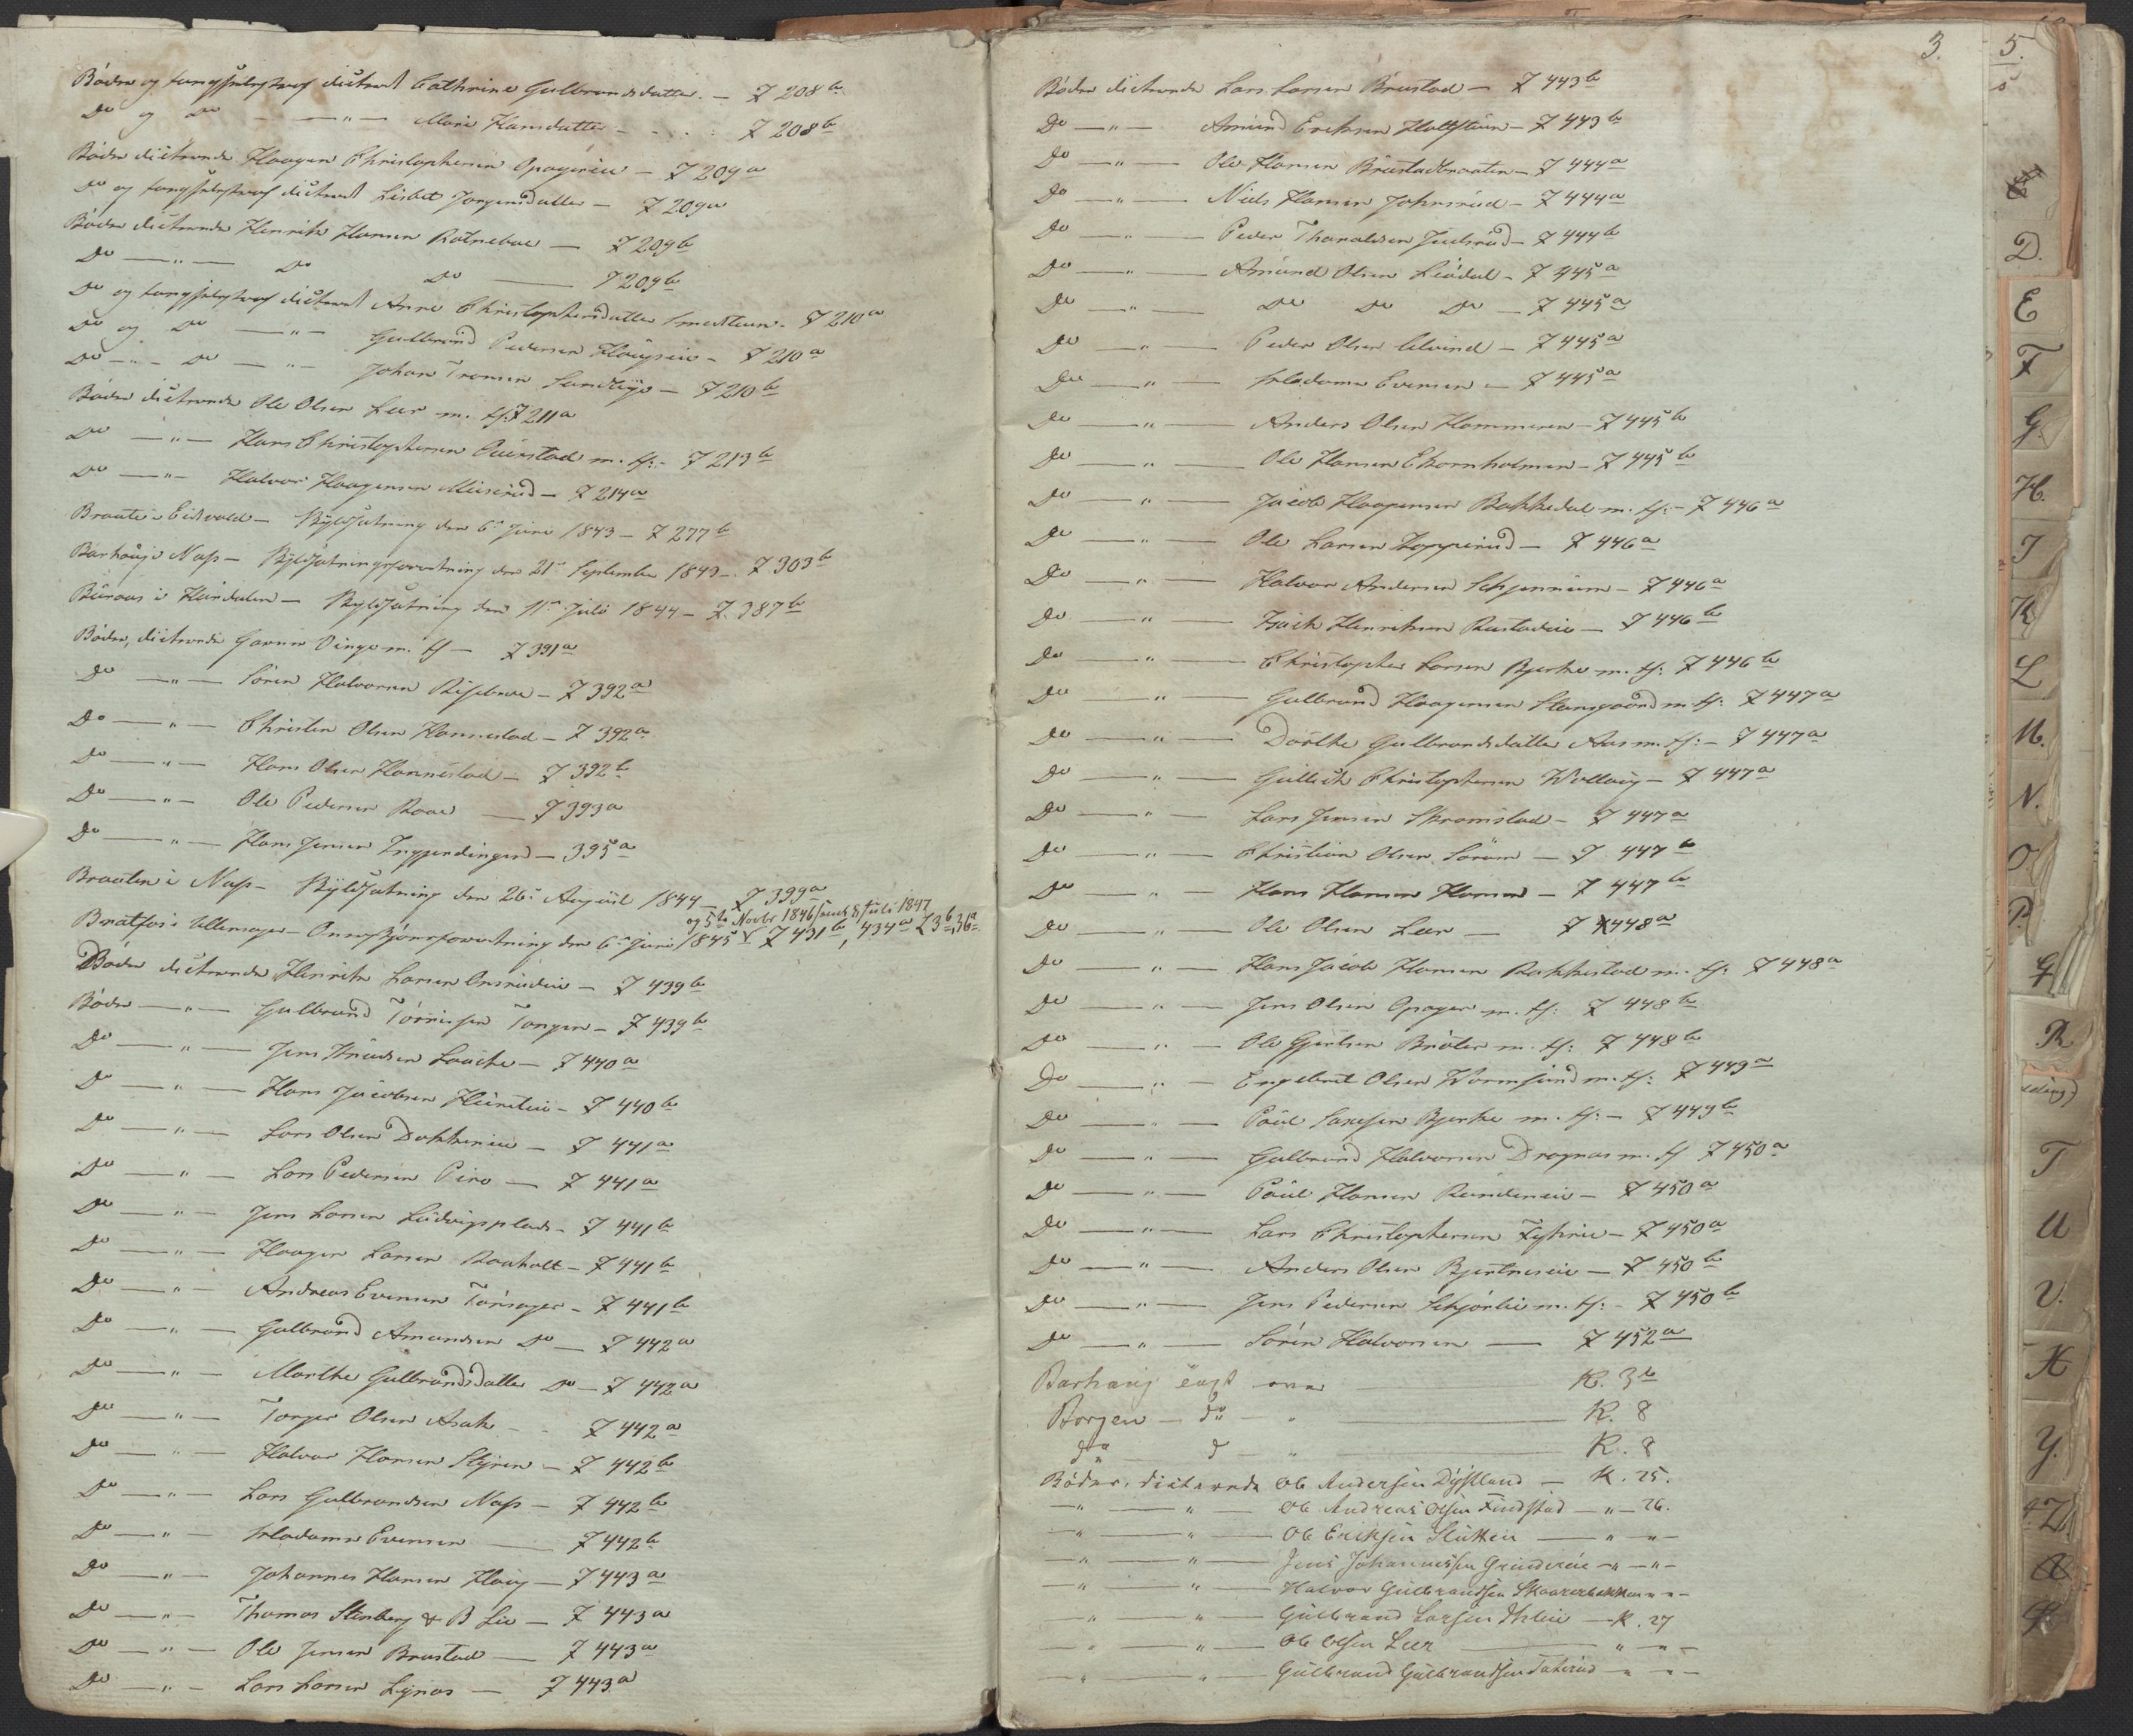 Böder og fangselsstraf dicteret Cathrine Gulbrandsdatter. — 7 208 b
Do og Do — " — Marie Hansdatter - - - 7 208 b
Böder dicterede Haagen Christophersen Opageriie — 7 209 a
Do og fangselsstraf dicteret Lisbet Jørgensdatter — 7 209 a
Böder dicterede Henrik Hansen Rotnebae — 7 209 b
Do — " — Do Do — 7 209 b
Do og fangselsstraf dicteret Anne Christophersdatter — 7 210 a
Do og Do — " — Gulbrand Pedersen Höugseie - 7 210 a
Do - " - Do — " — Johan Tronsen — 7 210 b
Böder dicterede Ole Olsen Leer m. fl. 7 211 a
Do — " — Hans Christophersen m. fl. - 7 213 b
Do — " — Halvor Haagensen — 7 214 a
Braate i Eidsvold — Skyldsætning den 6te Juni 1843 — 7 277 b
Barhoug i Næs — Skyldsætningsforretning den 21de September 1843 —. 7 303 b
Buraas i Hurdalen — Skyldsætning den 11te Juli 1844 — 7. 387 b
Böder, dicterede m. fl — 7 391 a
Do — " — Sören Halvorsen — 7 392 a
Do — " — Christen Olsen Hannestad — 7 392 a
Do — " — Hans Olsen Hannestad — 7 392 b
Do — " — Ole Pedersen Roae — 7 393 a
Do — " — Hans Jensen — 395 a
Braaten i Næs — Skyldsætning den 26de August 1844 — 7 399 a
og 5te Novbr 1846 samt 8 Juli 1847
Bratfos i Ullensager — forretning den 6te Juni 1845 V 7 431 b, 434 a 23 b 36 a
Böder dicterede Henrik Larsen — 7 439 b
Böder — " — Gulbrand Törrisen Tangen — 7 439 b
Do — " — Jens Knudsen Laache — 7 440 a
Do — " — Hans Jacobsen — 7 440 b
Do — " — Lars Olsen Dokkeneie — 7 441 a
Do — " — Lars Pedersen Piro — 7 441 a
Do — " — Jens Larsen Ludvigsplads — 7 441 b
Do — " — Haagen Larsen Raaholt — 7 441 b
Do — " — Andreas Evensen — 7 441 b
Do — " — Gulbrand Amundsen Do — 7 442 a
Do — " — Marthe Gulbrandsdatter Do — 7 442 a
Do — " — Torger Olsen Asak - - 7 442 a
Do — " — Halvor Hansen Styren — 7 442 b
Do — " — Lars Gulbrandsen Næs — 7 442 b
Do — " — Madame Evensen — 7 442 b
Do — " — Johannes Hansen Haug — 7 443 a
Do — " — Thomas Stenberg & B Lie — 7 443 a
Do — " — Ole Jensen Brustad — 7 443 a
Do — " — Lars Larsen Lynas — 7 443 a
3.
Böder dicterede Lars Larsen Brustad — 7 443 b
Do — " — Amund Eriksen — 7 443 b
Do — " — Ole Hansen Brustadbraaten — 7 444 a
Do — " — Niels Hansen Johnsrud — 7 444 a
Do — " — Peder Thoraldsen Juulsrud — 7 444 b
Do — " — Amund Olsen Liödal — 7 445 a
Do — " — Do Do Do — 7 445 a
Do — " — Peder Olsen — 7 445 a
Do — " — Madame Evensen — 7 445 a
Do — " — Anders Olsen Hammeren — 7 445 b
Do — " — Ole Hansen Ekornholmen — 7 445 b
Do — " — Jacob Haagensen Bakkedal m. fl. — 7 446 a
Do — " — Ole Larsen Hopperud — 7 446 a
Do — " — Halvor Andersen Schjennum — 7 446 a
Do — " — Isach Henriksen Rustadeie — 7 446 b
Do — " — Christopher Larsen Bjerke m. fl. 7 446 b
Do — " — Gulbrand Haagensen m. fl. 7 447 a
Do — " — Dorthe Gulbrandsdatter Aas m. fl. — 7 447 a
Do — " — Gullik Christophersen Wollaug — 7 447 a
Do — " — Lars Jensen Skramstad — 7 447 a
Do — " — Christian Olsen Sörum — 7 447 b
Do — " — Hans Hansen — 7 447 b
Do — " — Ole Olsen Leer — 7 448 a
Do — " — Hans Jacob Hansen Rakkestad m. fl. 7 448 a
Do — " — Jens Olsen Opager m. fl. 7 448 b
Do — " — Ole Gjertsen Bröter m. fl. 7 448 b
Do — " — Engebret Olsen Wormsund m. fl. 7 449 a
Do — " — Poul Larsen Bjerke m. fl. — 7 449 b
Do — " — Gulbrand Halvorsen Dragnæs m. fl 7 450 a
Do — " — Poul Hansen — 7 450 a
Do — " — Lars Christophersen — 7 450 a
Do — " — Anders Olsen Bjertneseie — 7 450 b
Do — " — Jens Pedersen m. fl. — 7 450 b
Do — " — Sören Halvorsen — 7 452 a
Barhaug — K. 3 b
Borgen — do — " — K. 8
do d — " — K. 8
Böder, dicterede Ole Andersen Dystland — K. 25.
— " — " — Ole Andreas Olsen Findstad — " — 26.
— " — " — Ole Eriksen Slütten — " — " —
— " — " — Jens Johannessen Grindereie — " — " —
— " — " — Halvor Gulbrandsen — " —
— " — " — Gulbrand Larsen — K. 27
— " — " — Ole Olsen Leer — " — " —
— " — " — Gulbrand Gulbrandsen — " — " —
5.
D.
E
F
G.
H.
I
K
L
M.
N.
O
P.
R
T
U
V.
X
Y.
Z.